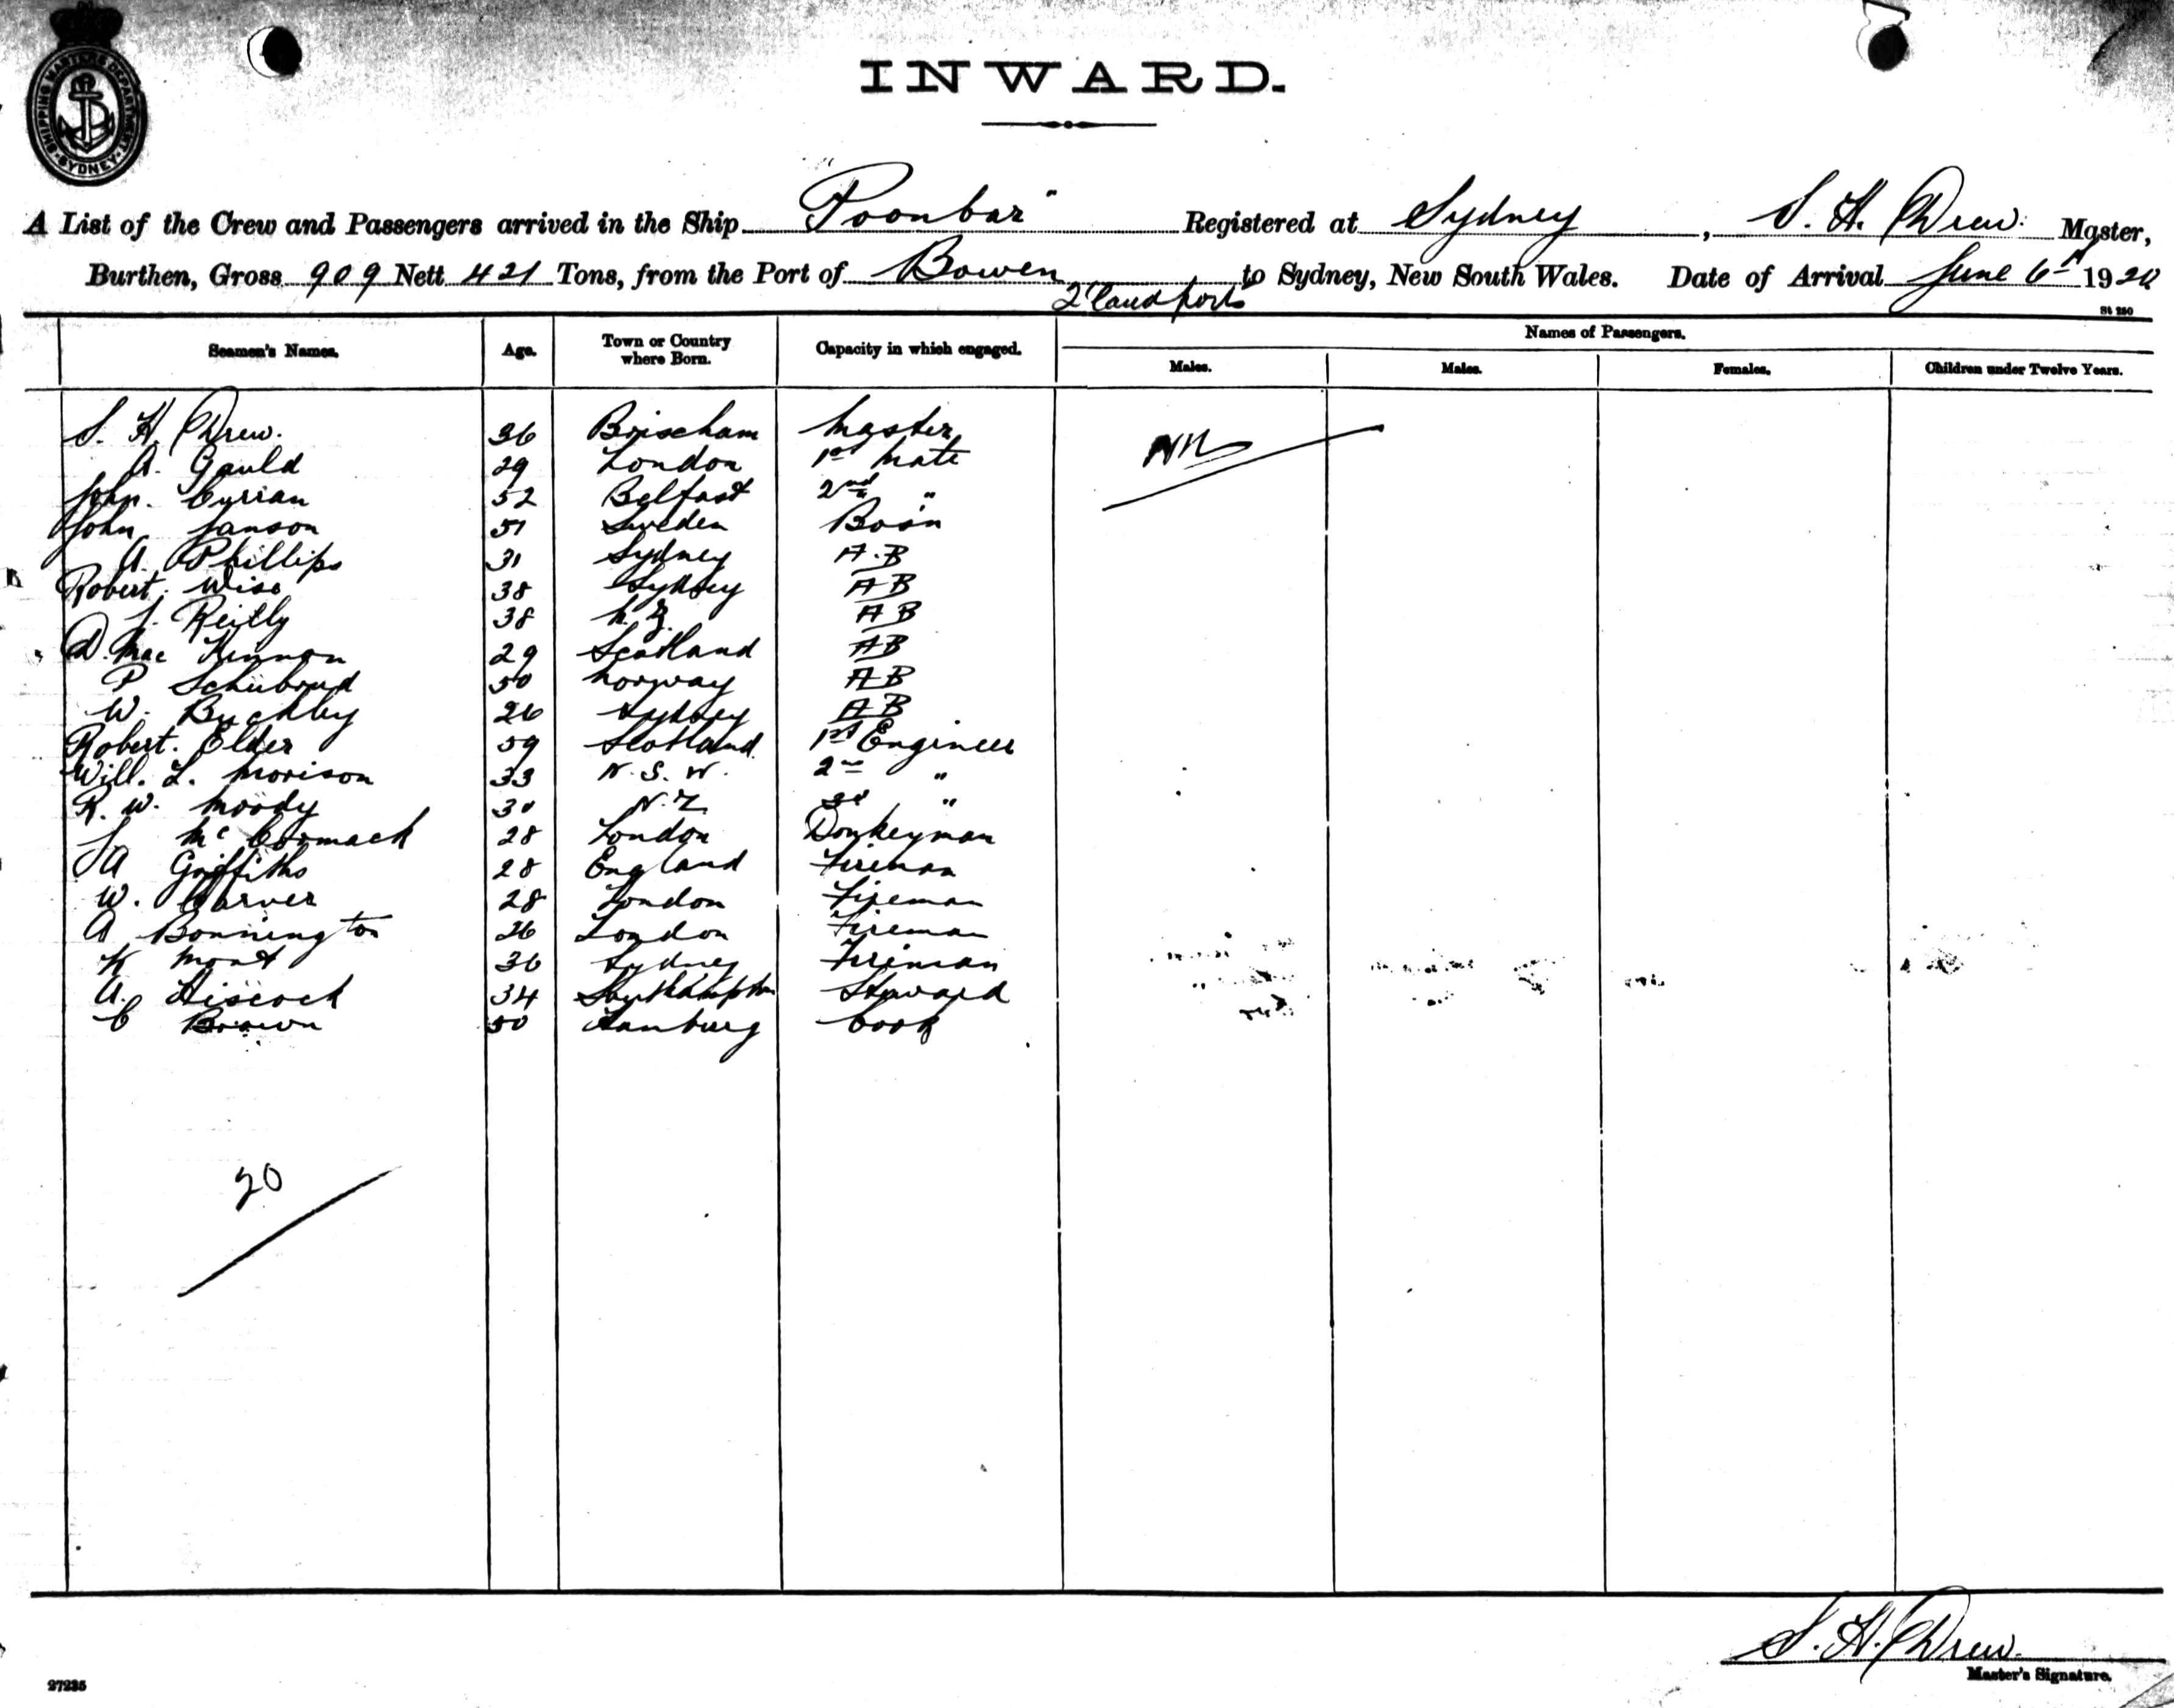 SHIPPING MASTERS DEPARTMENT SYDNEY
INWARD.
A List of the Crew and Passengers arrived in the Ship "Poonbar" Registered at Sydney, S. H. Drew. Master,
Burthen, Gross 909 Nett 421 Tons, from the Port of Bowen to Sydney, New South Wales. Date of Arrival June 6th 1920
Q'land ports
St 280
Seamen's Names. Age. Town or Country where Born. Capacity in which engaged. Names of Passengers.
Males. Males. Females. Children under Twelve Years.
S. H. Drew. 36 Brixham Master Nil
A. Gauld 29 London 1st Mate
John. Curran 52 Belfast 2nd "
John Janson 51 Sweden Bosn
A. Phillips 31 Sydney A.B
Robert. Wise 38 Sydney AB
J. Reilly 38 N.Z. AB
D. Mac Kinnon 29 Scotland AB
P 50 Norway AB
W. Buckley 26 Sydney AB
Robert. Elder 59 Scotland 1st Engineer
Will. L. Morison 33 N.S.W. 2nd "
R. W. Moody 30 N.Z 3d "
J McCormack 28 London Donkeyman
A Griffiths 28 England Fireman
W. Carver 28 London Fireman
A Bonnington 26 London Fireman
K Mont 36 Sydney Fireman
A. Hiscock 34 Southampton Steward
C Brown 50 Hamburg Cook
20
S. H. Drew.
Master's Signature.
27235